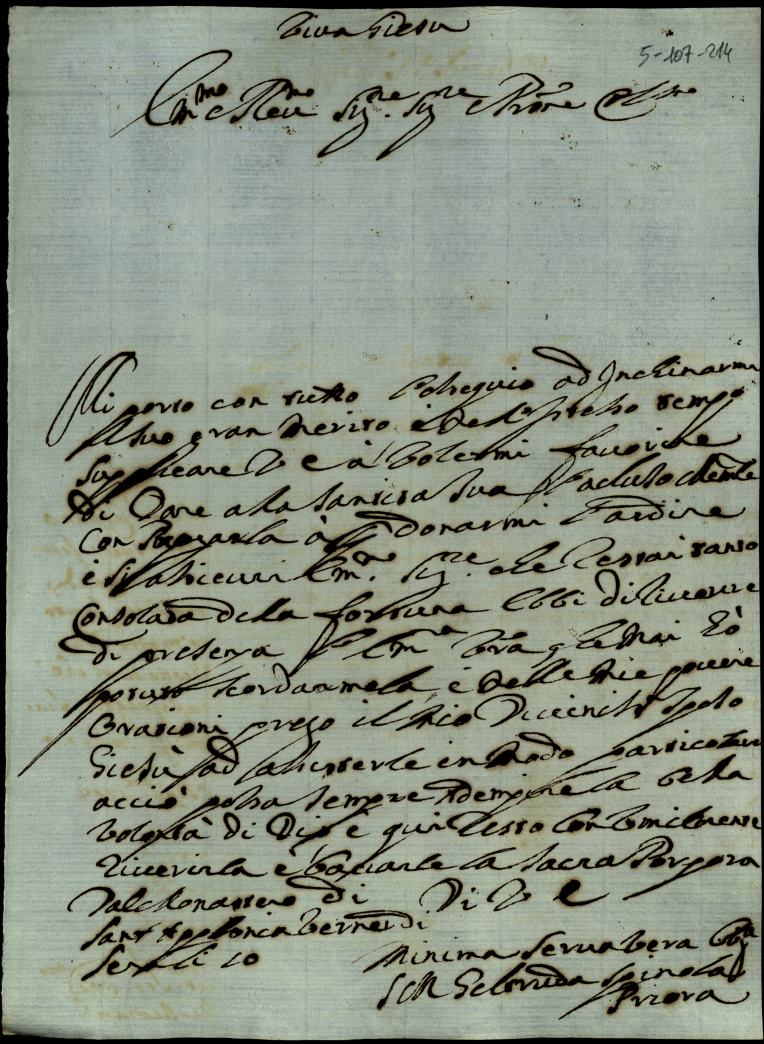 Viva Giesu
5-107-214
Em.mo e Reu.mo Sig.re Sig.re e Prone Col.mo
Mi porto con tutto l'ossequio ad Inchinarmi
al suo gran Merito e nello stesso tempo
Suplicare V E a volermi fauorire
di Dare alla Santità Sua l'acluso
con Pregarla à donarmi l'ardire
e si assicuri Em.o Sig.re che restai tanto
Consolada della fortuna Ebbi di riuerire
di presenza l'Em.a Vra che Mai hò
potuto scordarmela e nelle Mie pouere
Orazioni prego il Mio Diuinis.o Sposo
Giesù ad assisterle in Modo particolare
acciò possa sempre Adempire la bella
Volontà di Dio e qui resto con Vmilmente
riuerirla e baciarle la Sacra Porpora
Dal Monastero di Di V E
Sant Appolonia Vernerdi
Sera li 10 Minima Serua Vera
SCM Geltruda Spinola
Priora